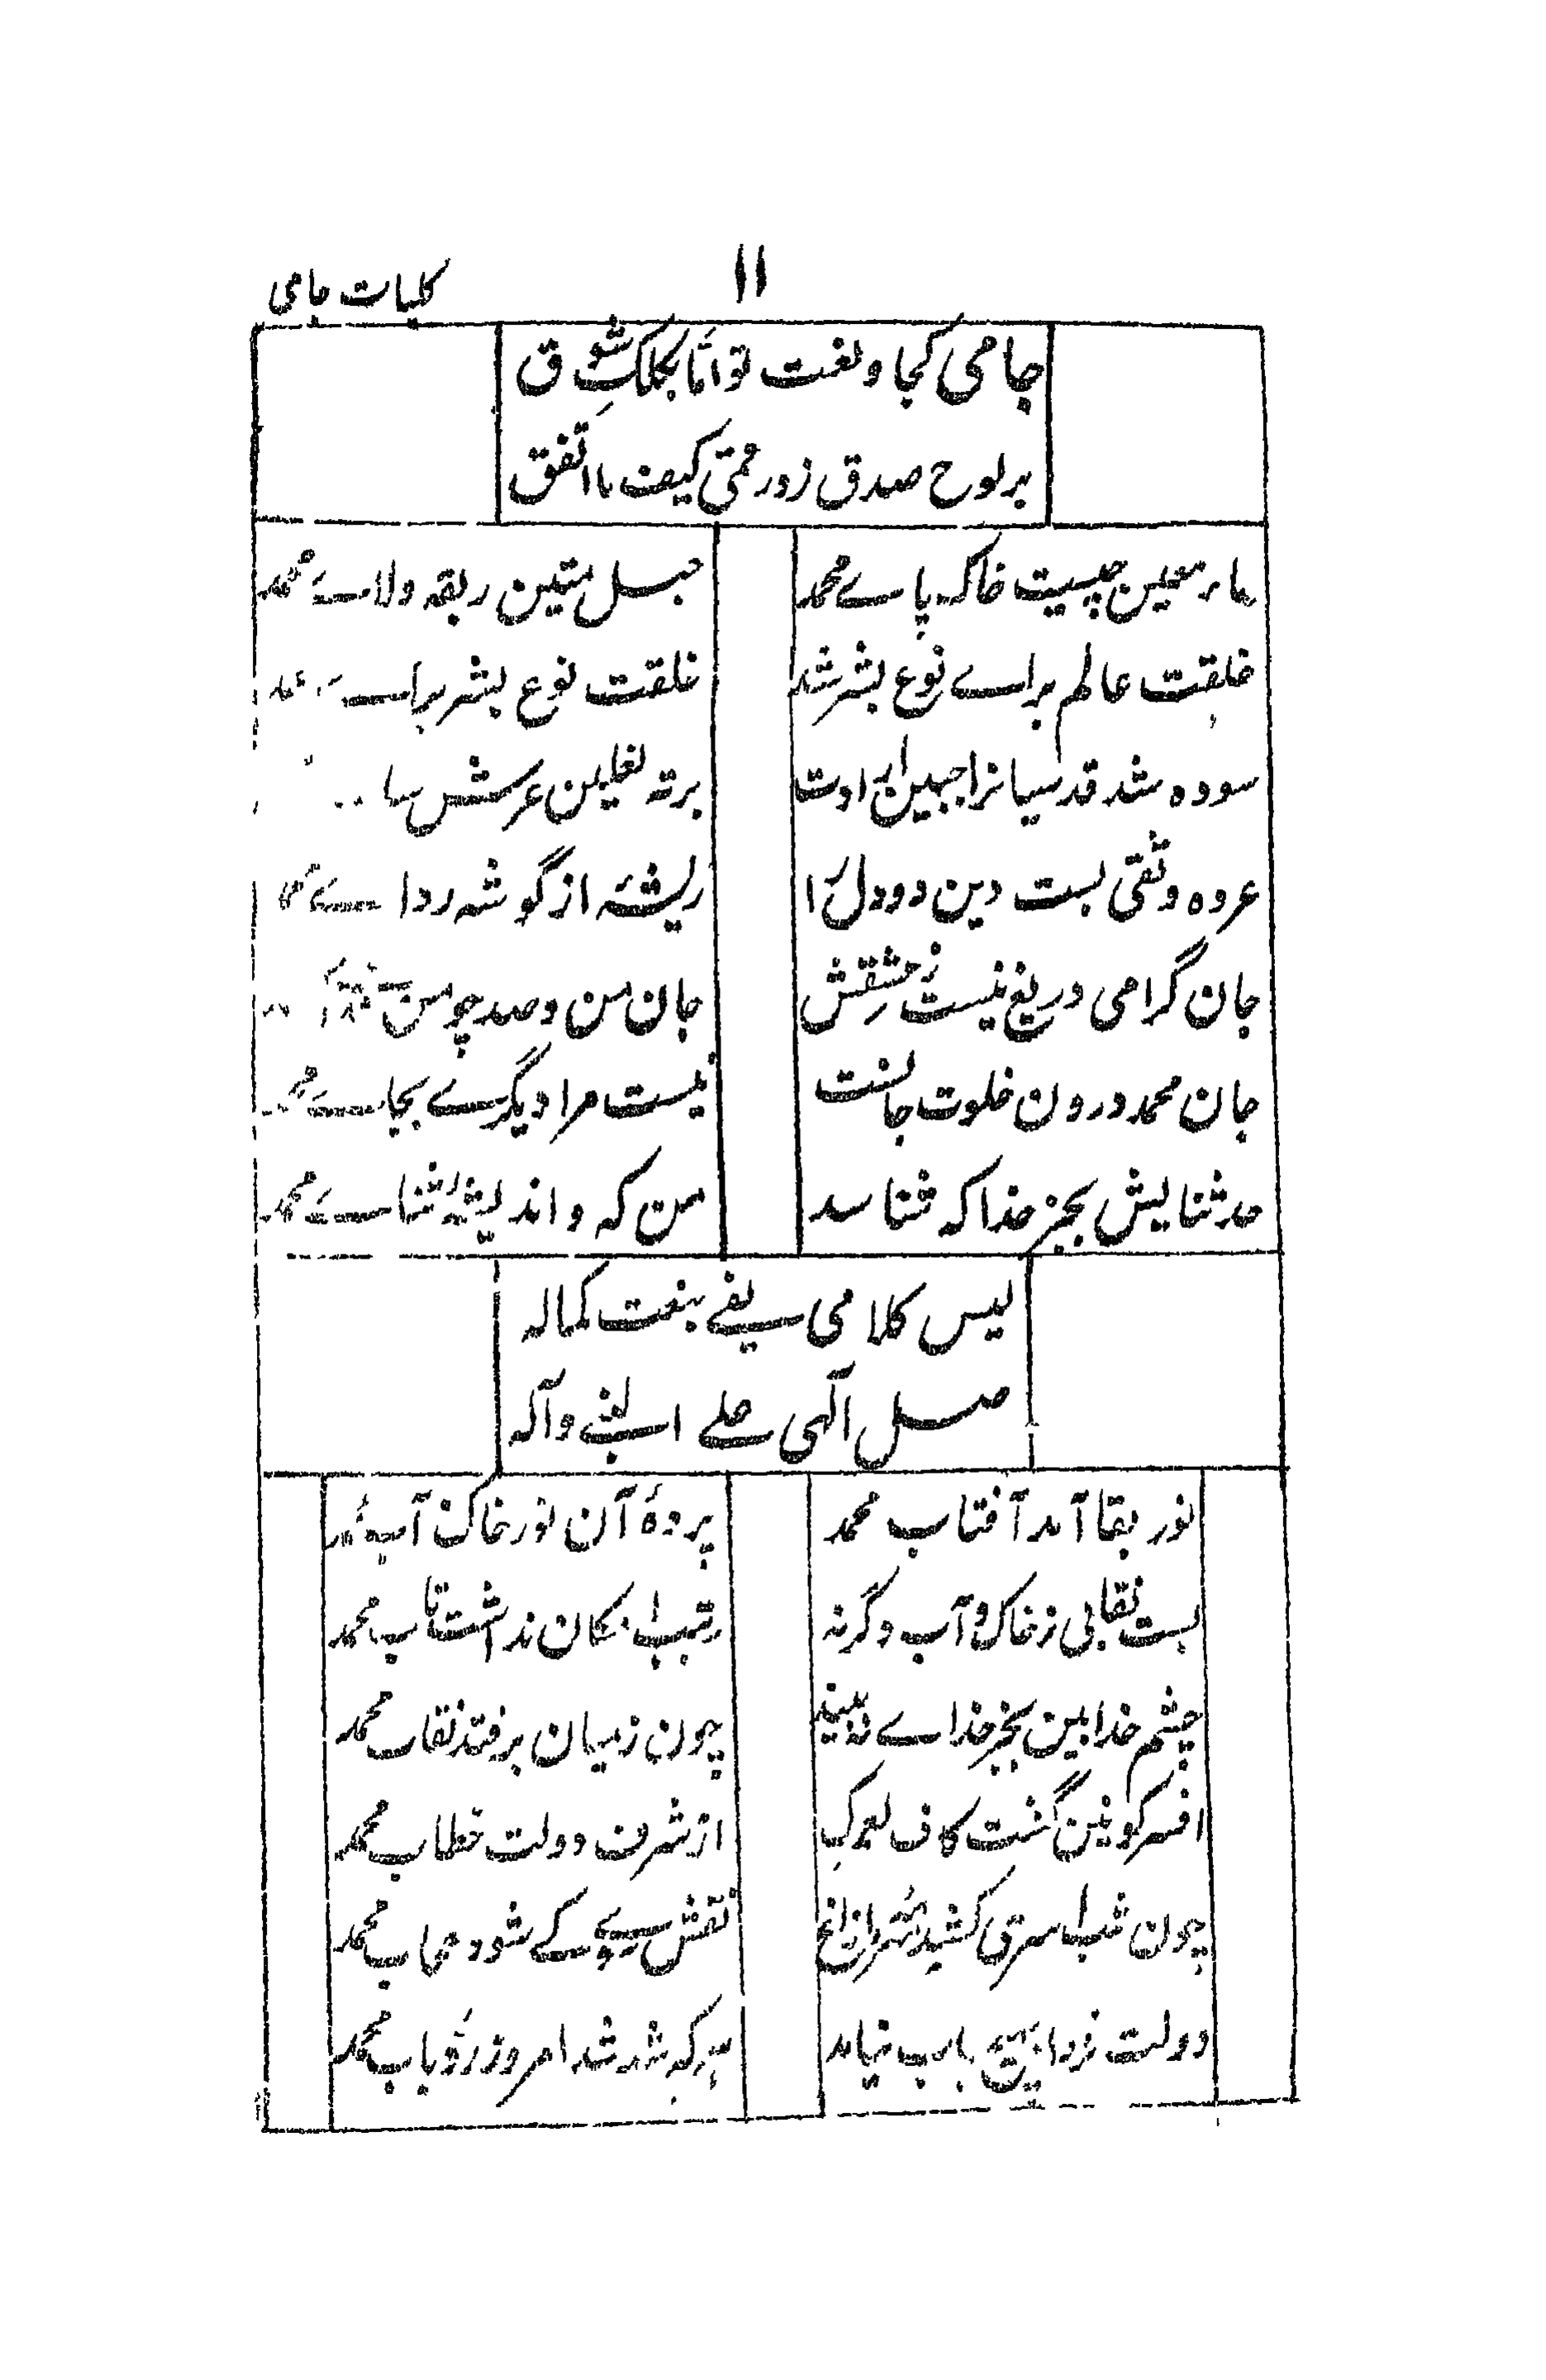 ۱۱
کلیات جامی
جامی کجا و نعت تو اما بکلک شوق
بر لوح صدق زد رقمی کیف ما اتفق
ماء معین چیست خاک پاے محمد
حبل متین ربقه ولاے محمد
خلقت عالم براے نوع بشر شد
خلقت نوع بشر براے محمد
سوده شد قدسیانرا جبین ارادت
بر ته نعلین عرش سا
عروه وثقی بست دین و دل را
ریشه از گوشه رداے
جان گرامی دریغ نیست ز عشقش
جان من و صد چو من
جان محمد درون خلوت جانست
نیست مرا دیگرے بجاے محمد
حد ثنایش بجز خدا که شناسد
من که و اندیشه ثناے محمد
لیس کلامی یفے بنعت کماله
صل آلهی علے النبے و آله
نور بقا آمد آفتاب محمد
پردهٔ آن نور خاک و آب محمد
بست نقابی ز خاک و آب وگرنه
رتبه امکان نداشت تاب محمد
چشم خدا بین بجز خداے نه بیند
چون ز میان بر فتد نقاب محمد
افسر کونین گشت کاف لعمرک
از شرف دولت خطاب محمد
چون شب اسری کشید
نقش سوے کے شود حجاب محمد
دولت فردا بهیچ باب نیابد
هر که نشد امروز رو بباب محمد